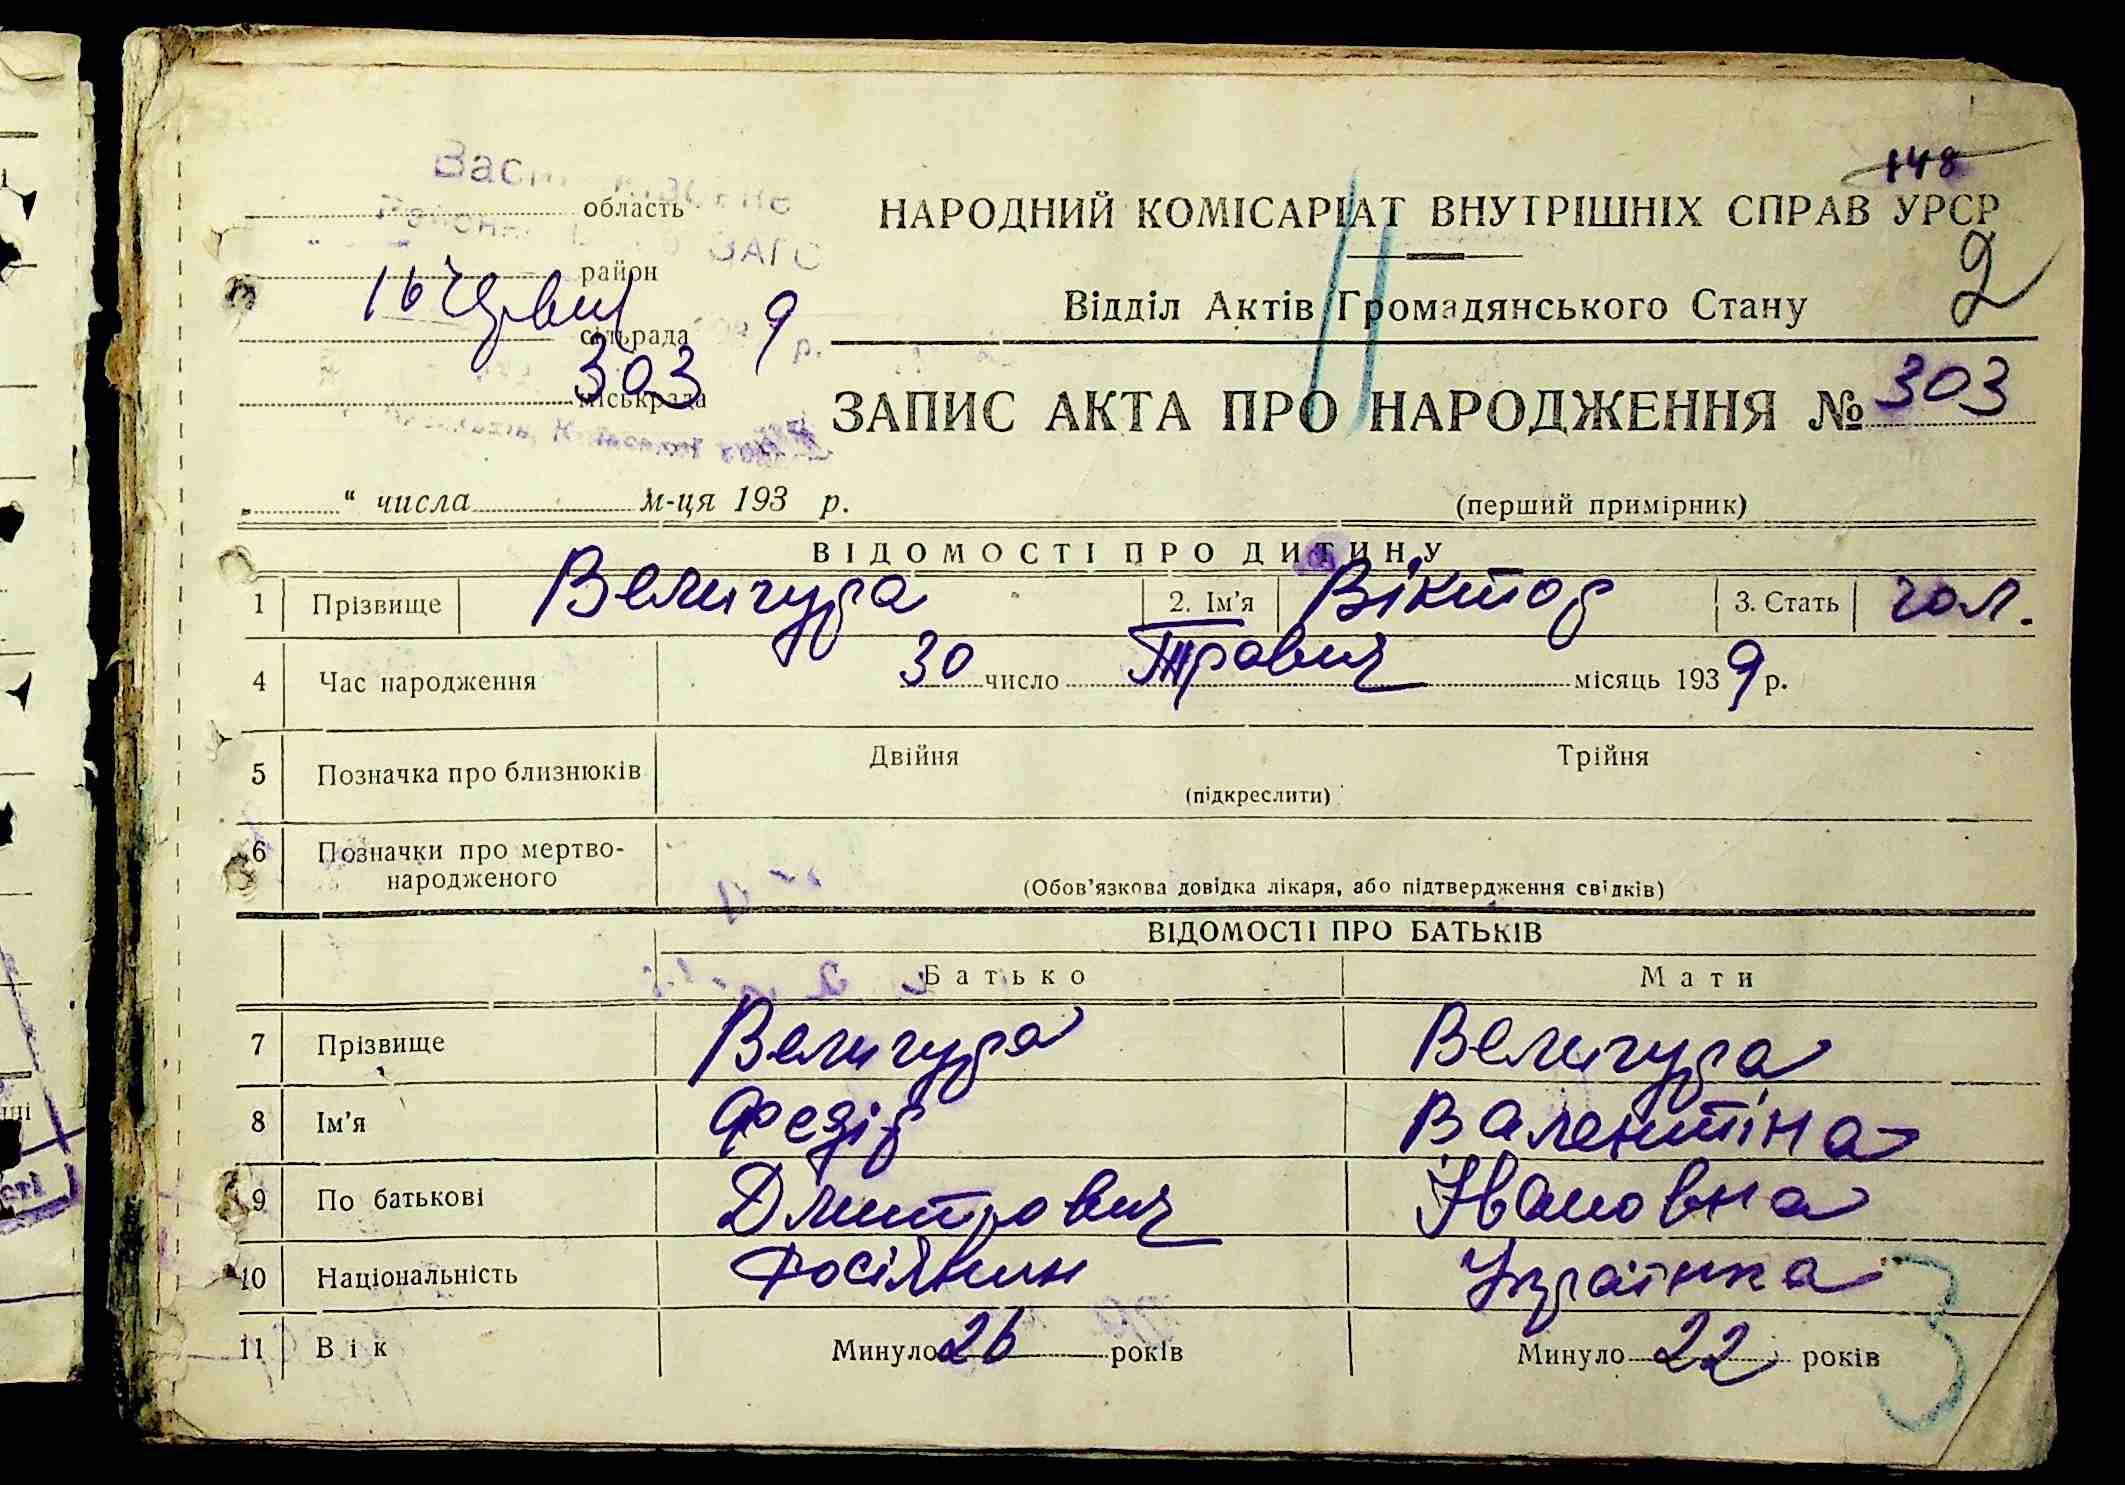 148
область
НАРОДНИЙ КОМІСАРІАТ ВНУТРІШНІХ СПРАВ УРСР
ЗАГС
район
2
16 червн 9 р.
Відділ Актів Громадянського Стану
сільрада
303
міськрада
ЗАПИС АКТА ПРО НАРОДЖЕННЯ № 303
„ “ числа м-ця 193 р.
(перший примірник)
ВІДОМОСТІ ПРО ДИТИНУ
1 Прізвище Величура 2. Ім'я Віктор 3. Стать чол.
4 Час народження 30 число Травня місяць 1939 р.
5 Позначка про близнюків Двійня Трійня
(підкреслити)
6 Позначки про мертво-
народженого
(Обов'язкова довідка лікаря, або підтвердження свідків)
ВІДОМОСТІ ПРО БАТЬКІВ
Батько Мати
7 Прізвище Величура Величура
8 Ім'я Федір Валентіна
9 По батькові Дмитрович Івановна
10 Національність Росіянин Українка
11 Вік Минуло 26 років Минуло 22 років
3